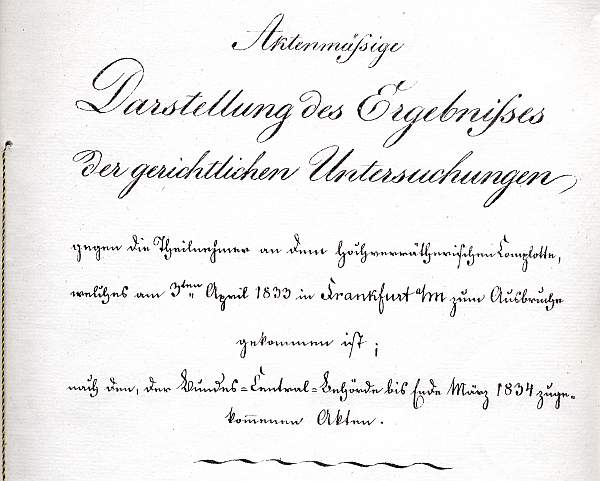 Aktenmäßige
Darstellung des Ergebnißes
der gerichtlichen Untersuchungen,
gegen die Theilnehmer an dem hochverrätherischen Complotte,
welches am 3ten April 1833 in Frankfurt a/M zum Ausbruche
gekommen ist;
nach den, der Bundes=Central=Behörde bis Ende März 1834 zuge-
kom̅enen Akten.